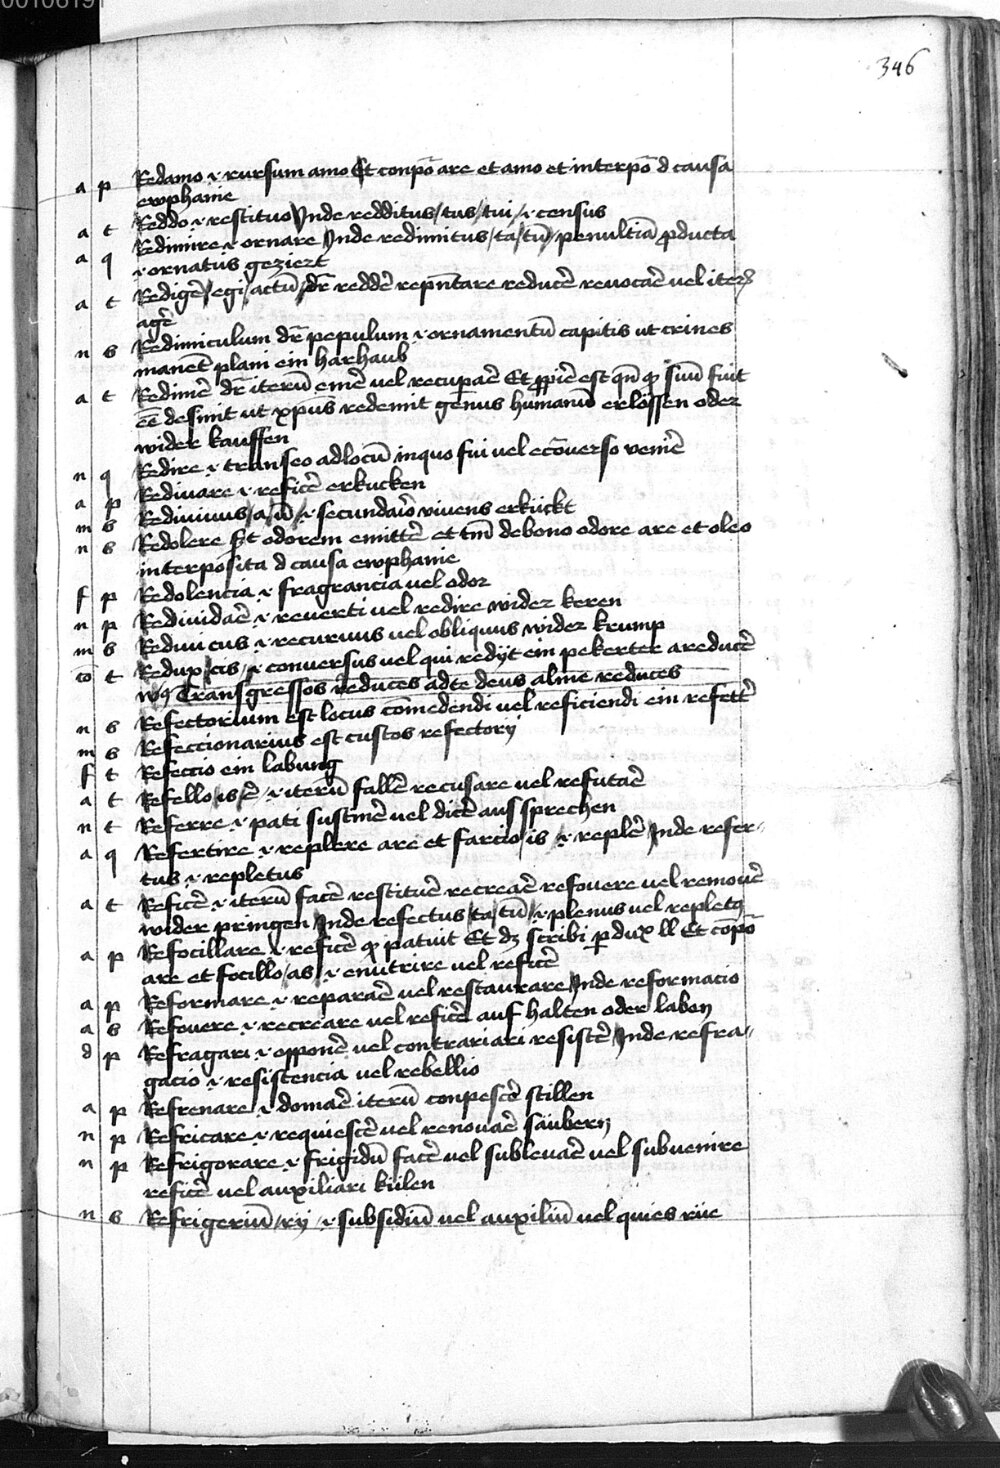 346
a p Redamo .i. rursum amo Et conpōr are et amo et interpōr d causa
ewphanie
a t Reddo .i. restituo Inde redditus/tus/tui/.i. census
a q Redimire .i. ornare Inde redimitus/ta/tū/penultīa pducta
.i. ornatus geziert
a t Redigē/egi/actū/dr̄ reddē repn̄tare reducē revocāe vel iterꝫ
agē
n s Redimiculum dr̄ pepulum .i. ornamentū capitis ut crines
manent plani ein harhaub
a t Redimē dr̄ iterū emē vel recupāe Et ppīe est qn̄ qꝫ suū fuit
eē desinit ut xpūs redemit genus humanū erlössen oder
wider kauffen
n q Redire .i. transeo ad locū in quo fui vel ecōverso venīe
a p Redivare .i. reficē erkucken
m s Redivivus/a/ū/.i. secundārō vivens erkückt
n s Redolere s̄t odorem emittē et tm̄ de bono odore are et oleo
interposita d causa ewphanie
f p Redolencia .i. fragrancia vel odor
n p Redividāe .i. reverti vel redire wider keren
m s Reduncus .i. recurvus vel obliquus wider krump
cō t Redux/cis/.i. conversus vel qui redijt ein pekerter a reducē
vꝰ Transgressos reduces ad te deus alme reduces
n s Refectorium est locus comedendi vel reficiendi ein refettē
m s Refeccionarius est custos refectorij
f t Refeccio ein labung
a t Refello/is/ē/.i. iterū fallē recusare vel refutāe
n t Referre .i. pati sustinē vel dicē aus sprechen
a q Refertire .i. replere a re et farcio/is/.i. replē Inde refer-
tus .i. repletus
a t Reficē .i. iterū facē restituē recreāe refovere vel removē
wider pringen Inde refectus/ta/tū/.i. plenus vel repletꝰ
a p Refocillare .i. reficē qꝫ patuit Et dꝫ scribi p dux ll Et cōpōr
a re et focillo/as/.i. enutrire vel reficē
a p Reformare .i. reparāe vel restaurare Inde reformacio
a s Refovere .i. recreare vel reficē auf halten oder laben
d p Refragari .i. opponē vel contrariari resistē Inde refra-
gacio .i. resistencia vel rebellio
a p Refrenare .i. domāe iterū conpescē stillen
n p Refricare .i. requiescē vel renovāe säubern
n p Refrigorare .i. frigidū facē vel sublevāe vel subvenire
reficē vel auxiliari külen
n s Refrigeriū/rij/.i. subsidiū vel auxiliū vel quies rüe